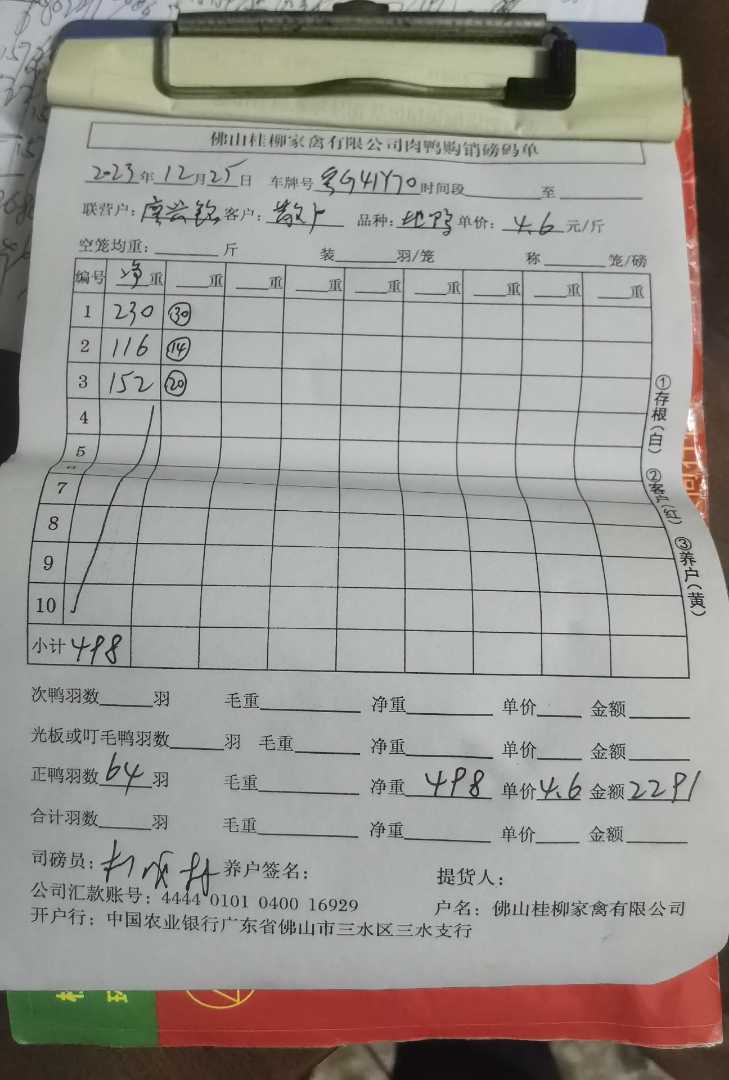 佛山桂柳家禽有限公司肉鸭购销磅码单
2023年12月25日 车牌号 粤G41Y70 时间段______至______
联营户: 客户: 散户 品种: 单价: 4.6 元/斤
空笼均重:______斤 装______羽/笼 称______笼/磅
编号 净重 ___重 ___重 ___重 ___重 ___重 ___重 ___重 ___重
1 230 ㉚
2 116 ⑭
3 152 ⑳
4
5
7
8
9
10
小计 498
①存根(白) ②客户(红) ③养户(黄)
次鸭羽数_____羽 毛重_____ 净重_____ 单价____ 金额_____
光板或叮毛鸭羽数_____羽 毛重_____ 净重_____ 单价____ 金额_____
正鸭羽数 64 羽 毛重_____ 净重 498 单价 4.6 金额 2291
合计羽数_____羽 毛重_____ 净重_____ 单价____ 金额_____
司磅员: 养户签名: 提货人:
公司汇款账号: 4444 0101 0400 16929 户名: 佛山桂柳家禽有限公司
开户行: 中国农业银行广东省佛山市三水区三水支行